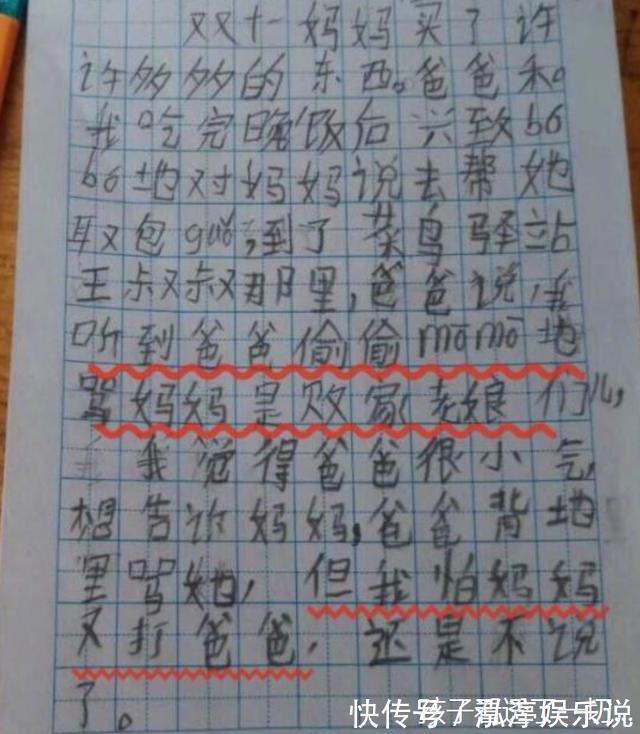 双十一妈妈买了许
许多多的东西。爸爸和。
我吃完晚饭后兴致bó
bó地对妈妈说去帮她
取包guǒ,到了菜鸟驿站
王叔叔那里,爸爸说,我
听到爸爸偷偷mōmō地
骂妈妈是败家老娘们儿,
我觉得爸爸很小气,
想告诉妈妈,爸爸背地
里骂她,但我怕妈妈
又打爸爸,还是不说
了。
快传号/孤萍娱乐说